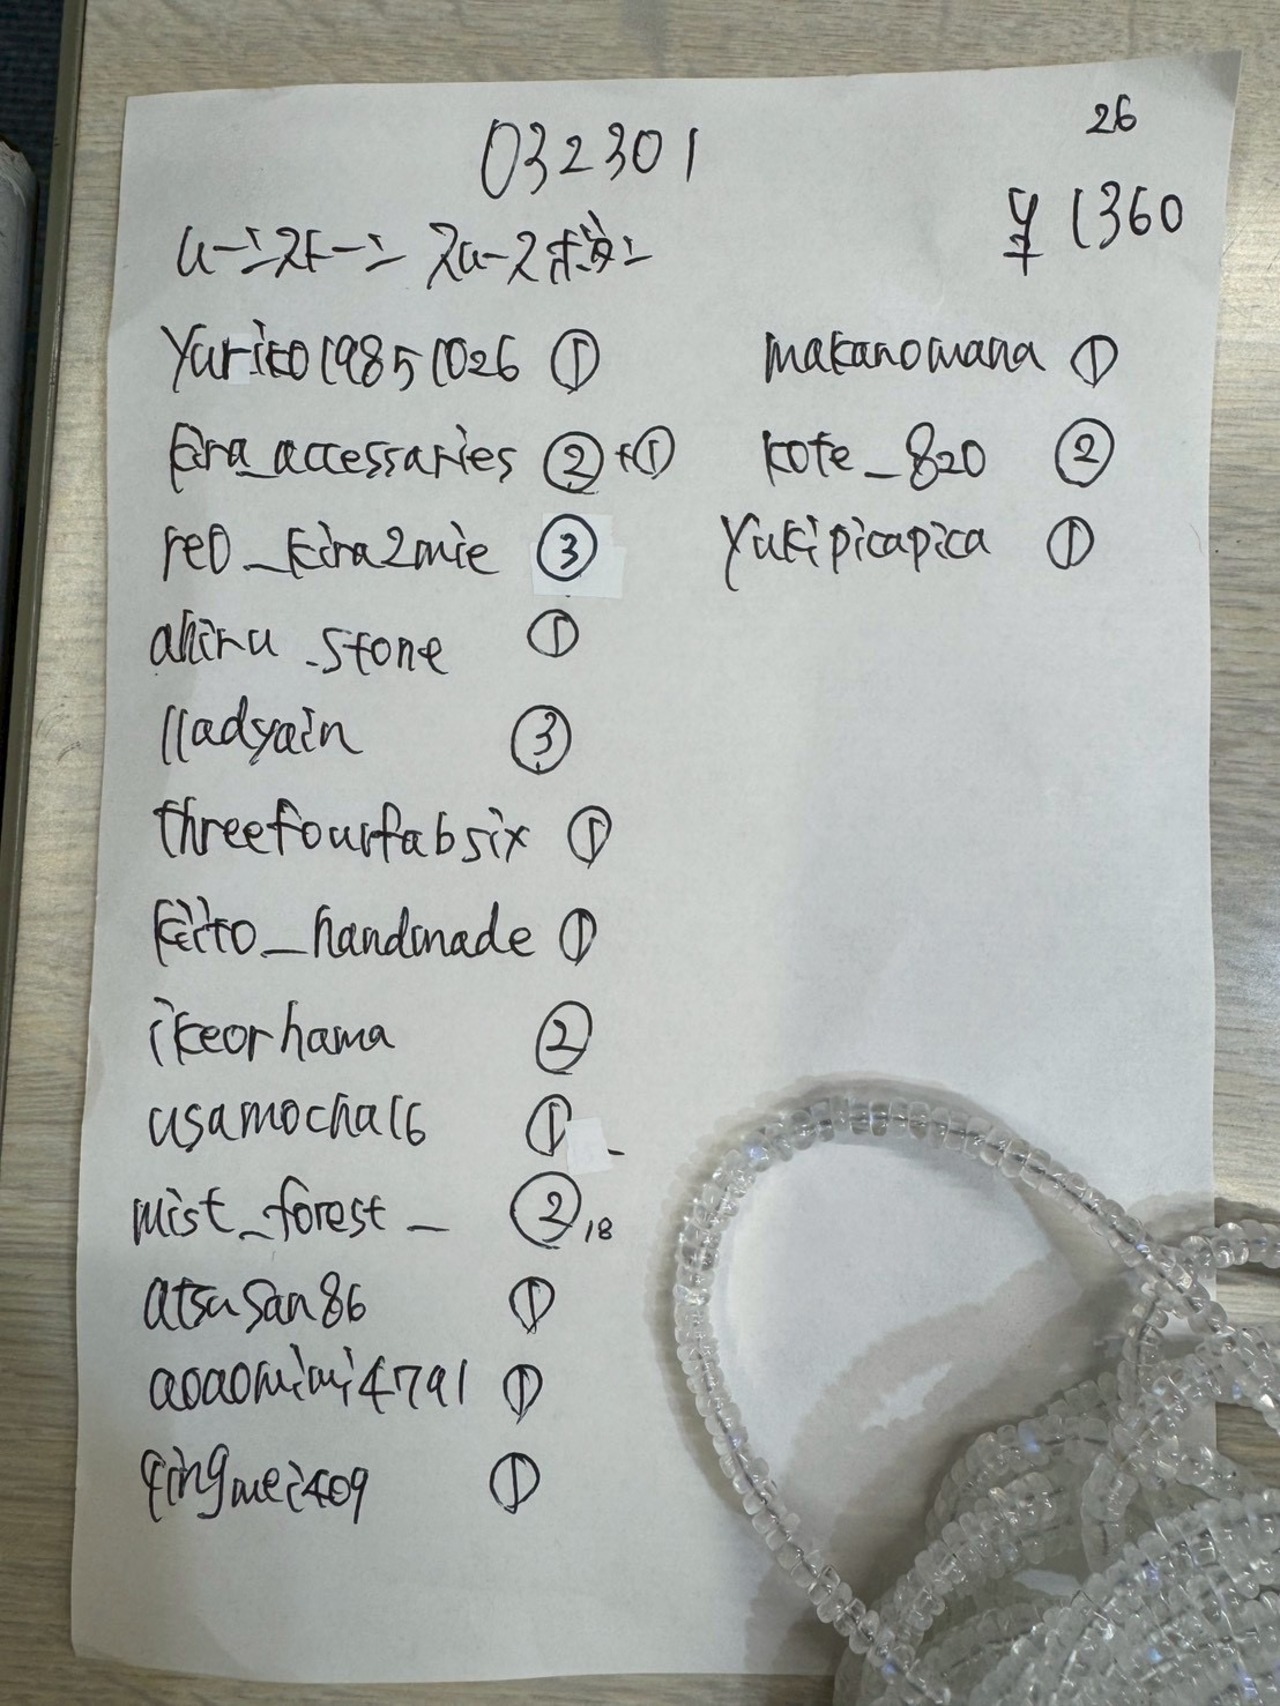 032301
26
¥1360
ムーンストーン スムース ボタン
Yuriko19851026 ①
kira_accessaries ②+①
reo_kira2mie ③
ahiru_stone ①
lladyain ③
threefourfabsix ①
keito_handmade ①
ikeorhama ②
usamocha16 ①
mist_forest_ ②,18
atsusan86 ①
aoaomimi4791 ①
qingmei409 ①
makanomana ①
kote_820 ②
Yukipicapica ①